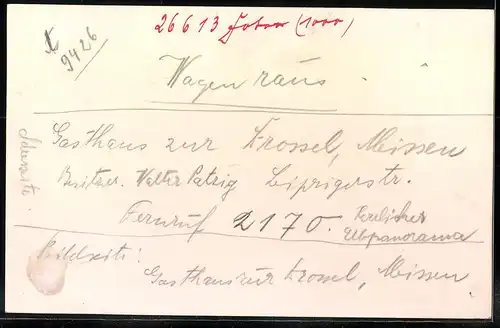 26613 Fotos (1000)
9426
Wagen raus
Adresseite:
Gasthaus zur Drossel, Meissen
Besitzer: Walter Patzig Leipzigerstr.
Fernruf 2170. Herrliches
Elbpanorama
Bildseite:
Gasthaus zur Drossel, Meissen.